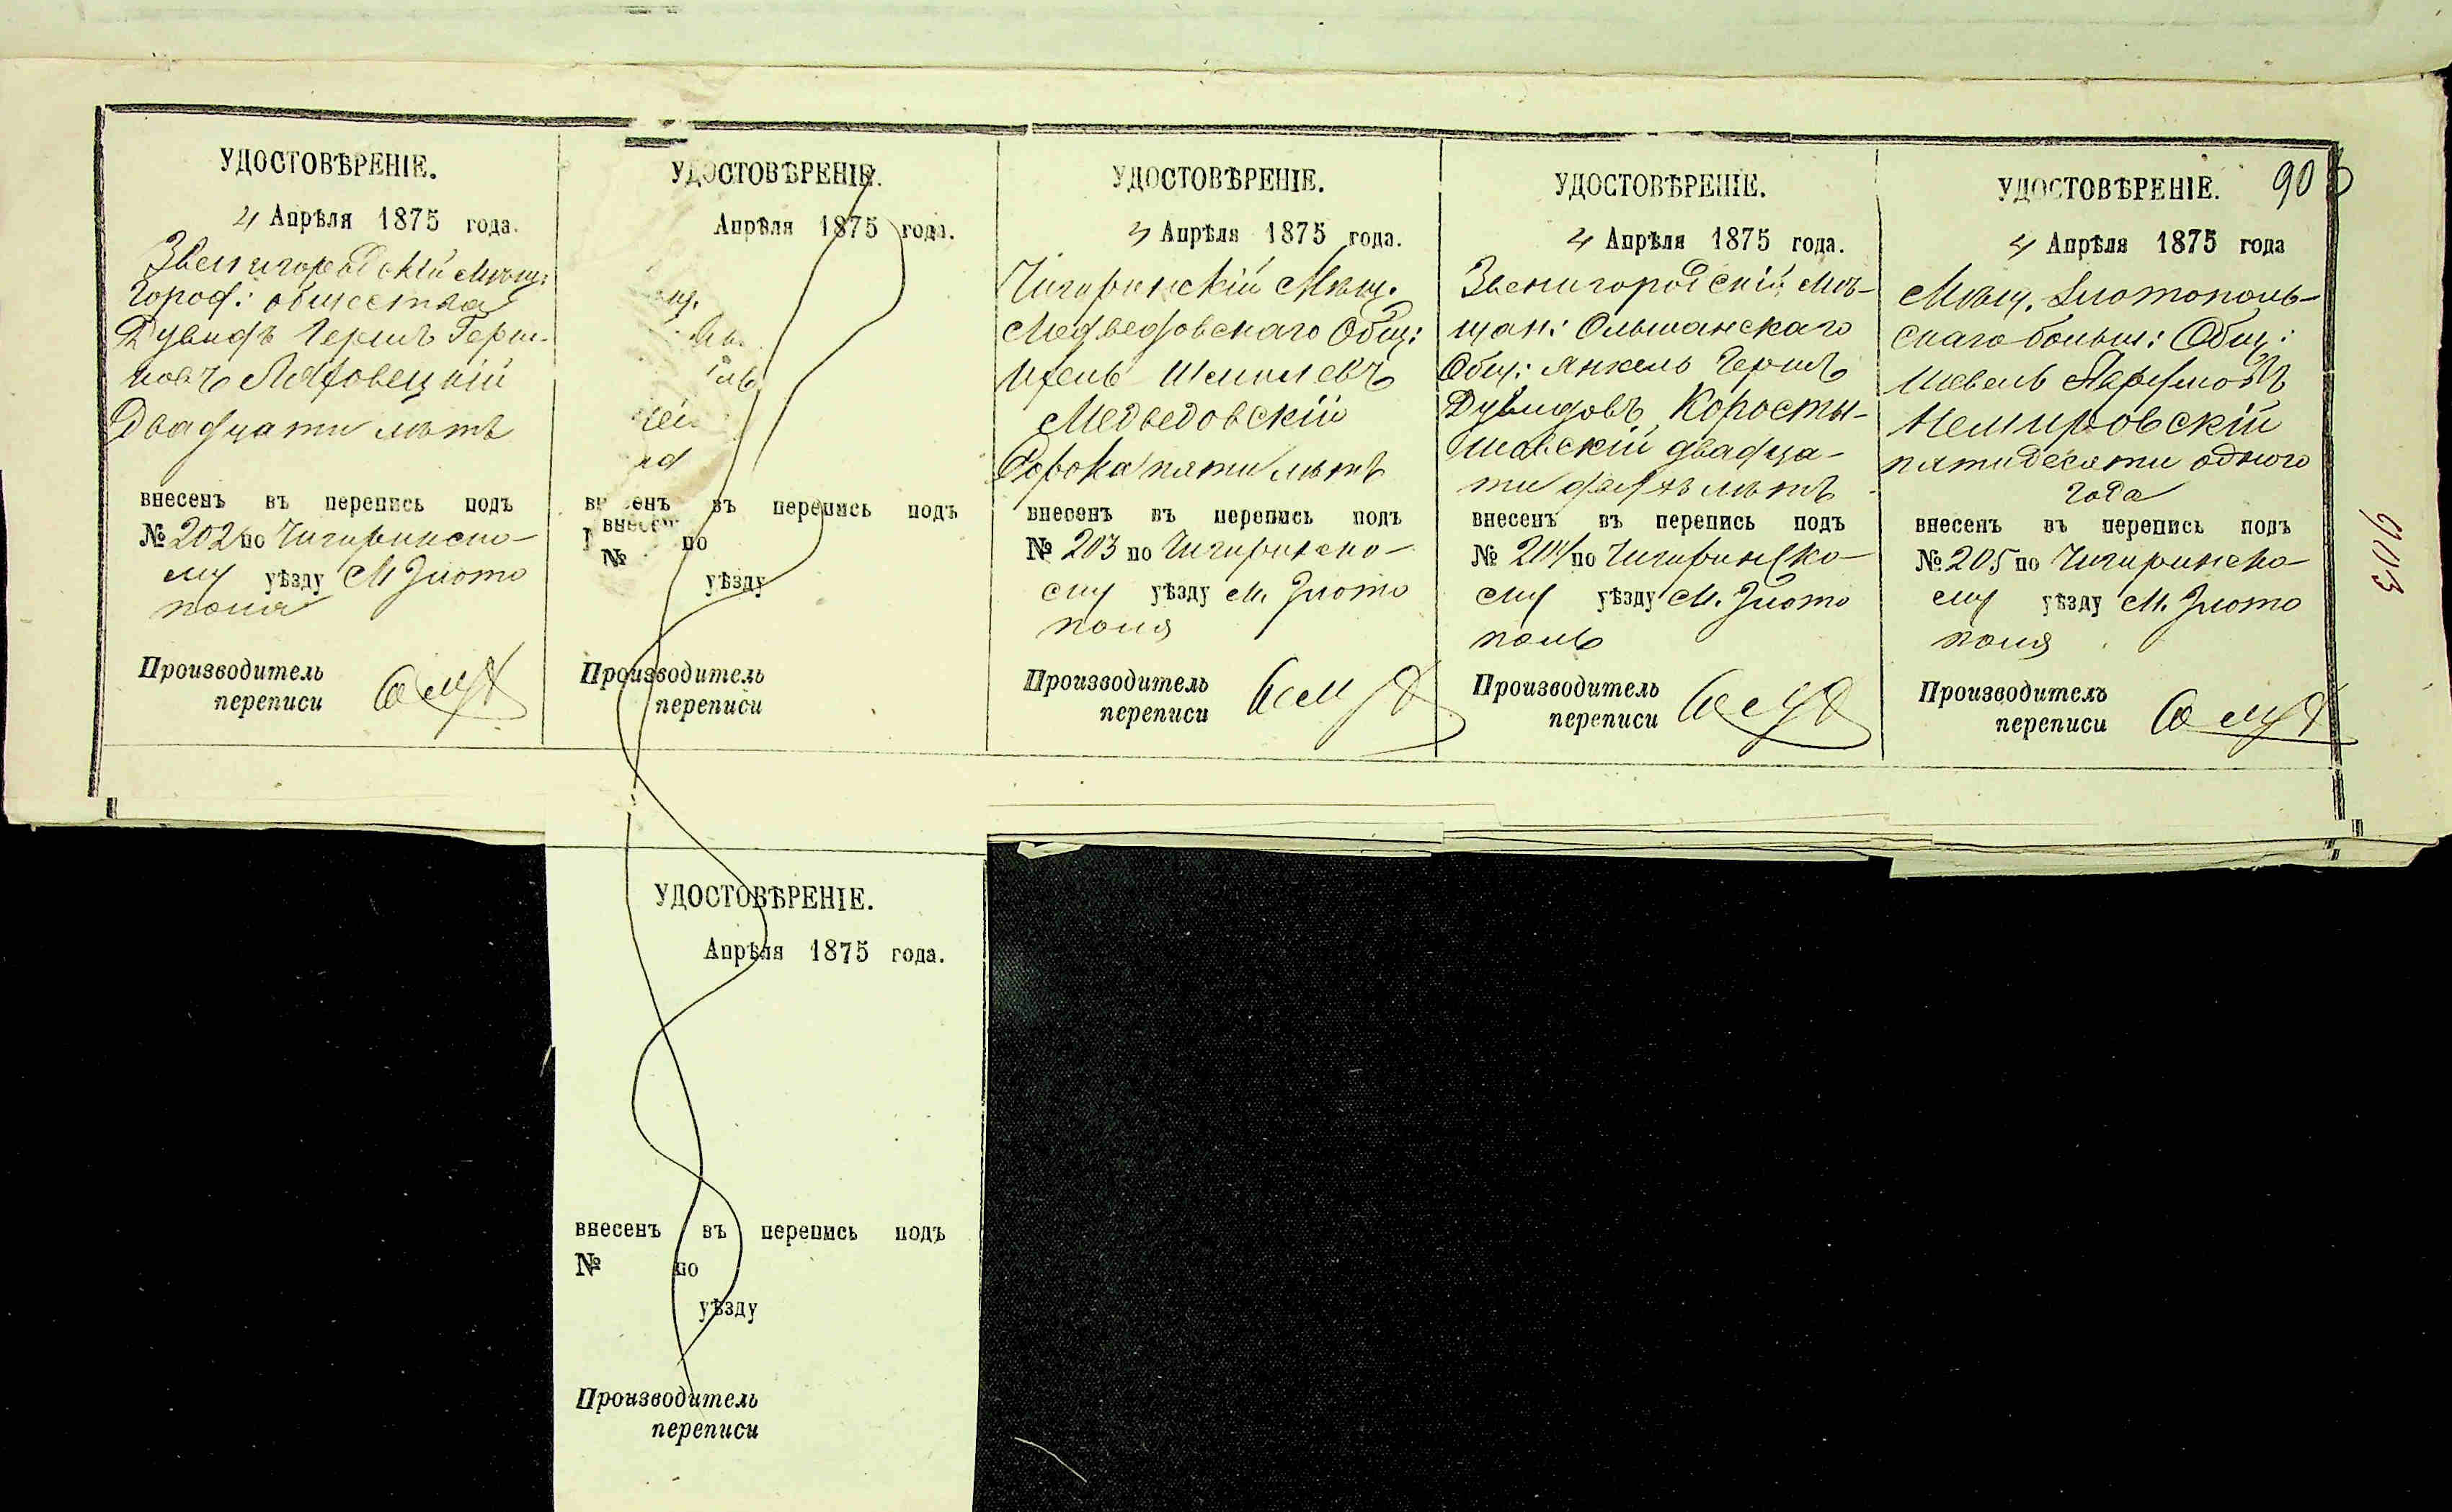 90
УДОСТОВѢРЕНІЕ.
4 Апрѣля 1875 года.
Звенигородскій мѣщ:
город: общества
Дувидъ Гершъ Герш-
ковъ Лядовецкій
Двадцати лѣтъ
внесенъ въ перепись подъ
№ 202 по Чигиринско-
му уѣзду М Злото
поля
Производитель
переписи
УДОСТОВѢРЕНІЕ.
Апрѣля 1875 года.
внесенъ въ перепись подъ
внесенъ
№ по
уѣзду
Производитель
переписи
УДОСТОВѢРЕНІЕ.
4 Апрѣля 1875 года.
Чигиринскій Мѣщ.
Медведовскаго Общ:
Шмилевъ
Медведовскій
Сорока пяти лѣтъ
внесенъ въ перепись подъ
№ 203 по Чигиринско-
му уѣзду М. Злото
поля
Производитель
переписи
УДОСТОВѢРЕНІЕ.
4 Апрѣля 1875 года.
Звенигородскій Мѣ-
щан: Ольшанскаго
Общ: Янкель Гершъ
Дувидовъ Коросты-
шовскій двадца-
ти лѣтъ
внесенъ въ перепись подъ
№ 204 по Чигиринско-
му уѣзду М. Злото
поль
Производитель
переписи
УДОСТОВѢРЕНІЕ.
4 Апрѣля 1875 года
Мѣщ. Златополь-
скаго больш: Общ:
Шевель
Немировскій
пятидесяти одного
года
внесенъ въ перепись подъ
№ 205 по Чигиринско-
му уѣзду М. Злото
поля
Производитель
переписи
903
УДОСТОВѢРЕНІЕ.
Апрѣля 1875 года.
внесенъ въ перепись подъ
№ по
уѣзду
Производитель
переписи